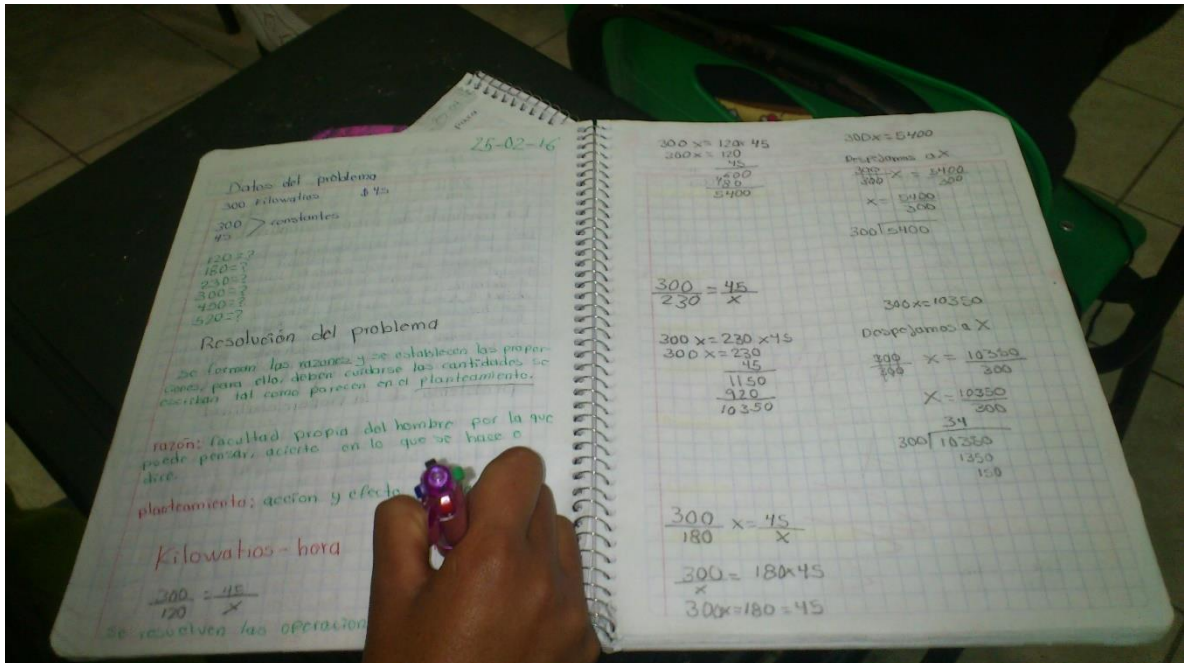 25-02-16
Datos del problema
300 Kilowatios $45
300
45 > constantes
120=?
180=?
230=?
300=?
400=?
520=?
Resolución del problema
se forman las razones y se establecen las propor-
ciones, para ello, deben cuidarse las cantidades se
escriban tal como parecen en el planteamiento.
razón: facultad propia del hombre por la que
puede pensar, acierto en lo que se hace o
dice.
planteamiento: acción y efecto
Kilowatios-hora
300/120 = 45/x
se resuelven las operacion
300 x= 120x45
300x=120
45
600
480
5400
300x=5400
Despejamos a X
300/300 X = 5400/300
X= 5400/300
300√5400
300/230 = 45/x
300 x=230 x45
300x=230
45
1150
920
10350
300x=10350
Despejamos a X
300/300 X = 10350/300
X= 10350/300
34
300√10350
1350
150
300/180 x= 45/x
300/x = 180x45
300x=180=45